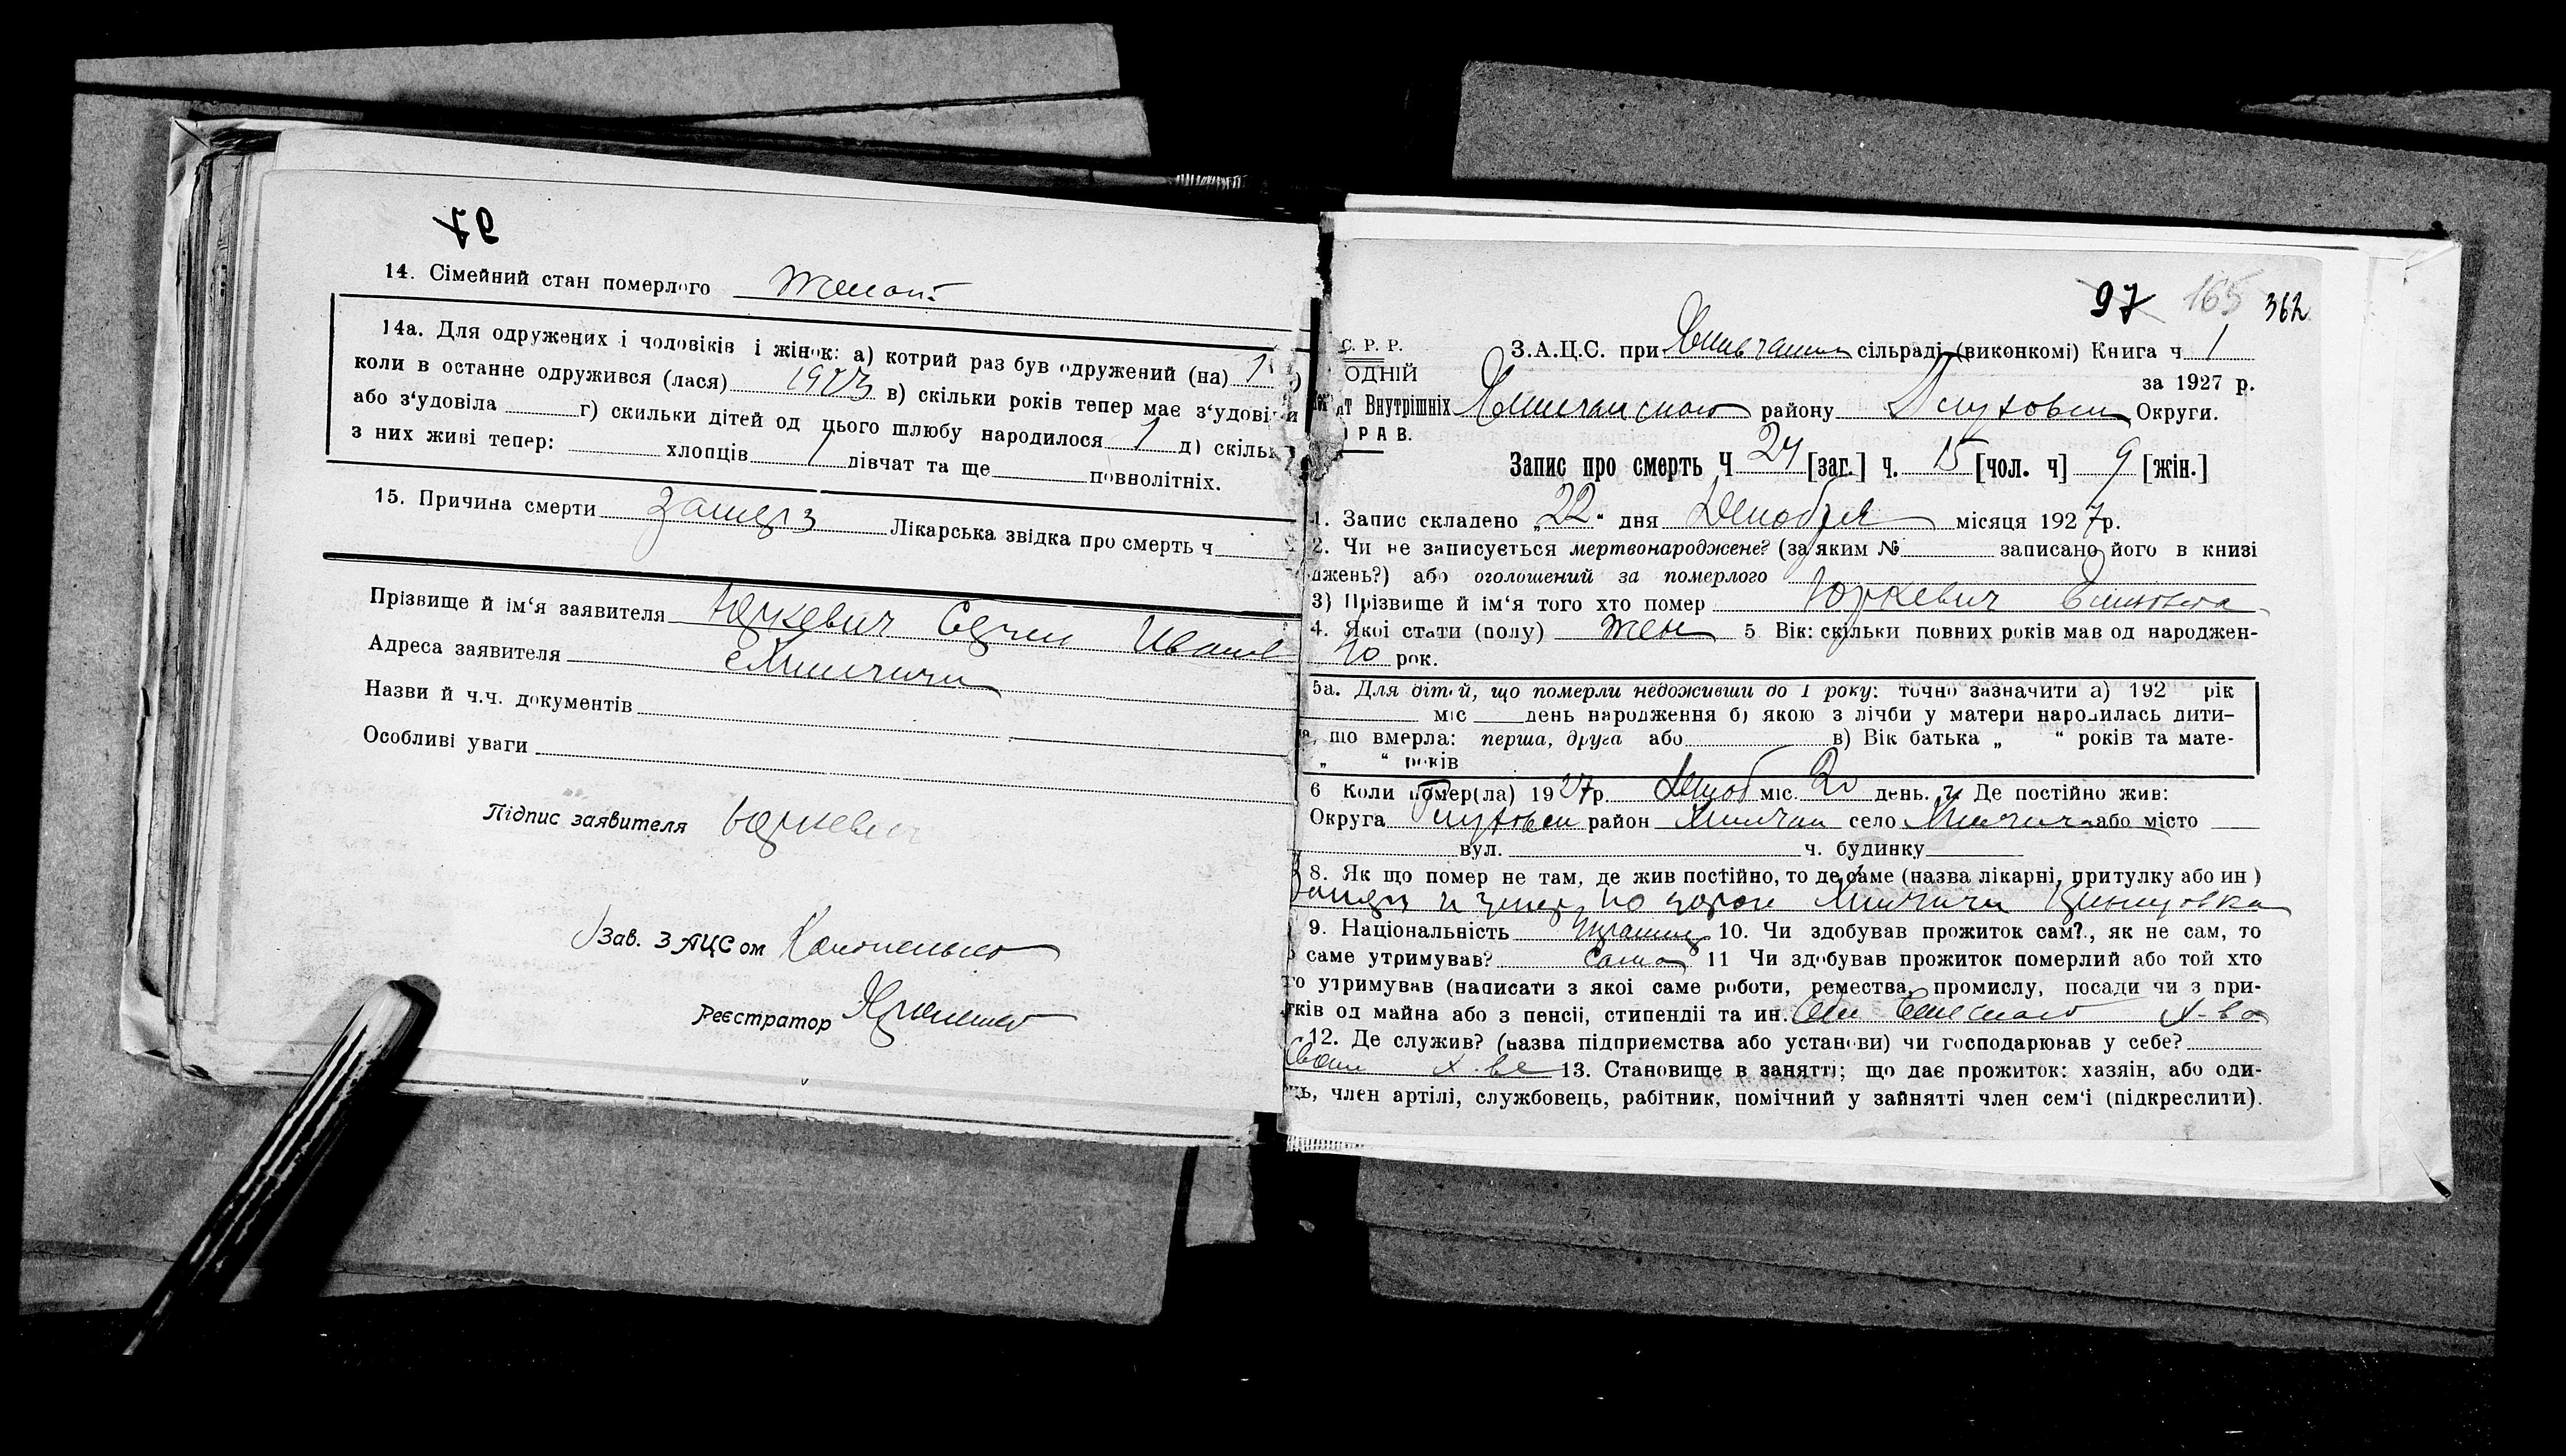 97
14. Сімейний стан померлого Женат
14а. Для одружених і чоловіків і жінок: а) котрий раз був одружений (на) 1
коли в останне одружився (лася) 1923 в) скільки років тепер має з‘удові
або з‘удовіла г) скильки дітей од цього шлюбу народилося 1 д) скіль
з них живі тепер: хлопців 1 дівчат та ще повнолітніх.
15. Причина смерти замерз Лікарська звідка про смерть ч
Прізвище й ім‘я заявителя Юркевич Сергей Иванов
Адреса заявителя с Хинчичи
Назви й ч.ч. документів
Особливі уваги
Підпис заявителя Юркевич
Зав. ЗАЦСом
Реєстратор
97 165 362
С. Р. Р.
З.А.Ц.С. при сільраді (виконкомі) Книга ч 1
ОДНІЙ
за 1927 р.
ат Внутрішніх району Глуховск Округи.
РАВ.
Запис про смерть Ч 24 [заг.] ч. 15 [чол. ч] 9 [жін.]
1. Запис складено „22“ дня Декабря місяця 1927р.
2. Чи не записується мертвонароджене? (за яким № записано його в книзі
джень?) або оголошений за померлого
3) Прізвище й ім‘я того хто помер Юркевич
4. Якоі стати (полу) жен 5 Вік: скільки повних років мав од народжен-
рок.
5а. Для дітей, що померли недоживши до 1 року: точно зазначити а) 192 рік
міс день народження б) якою з лічби у матери народилась дити-
що вмерла: перша, друга або в) Вік батька „ “ років та мате-
„ “ років
6 Коли помер(ла) 1927р. Декаб міс. 20 день. 7. Де постійно жив:
Округа Глуховск район село або місто
вул. ч. будинку
8. Як що помер не там, де жив постійно, то де саме (назва лікарні, притулку або ин)
замерз
9. Національність 10. Чи здобував прожиток сам?, як не сам, то
саме утримував? сама 11 Чи здобував прожиток померлий або той хто
го утримував (написати з якоі саме роботи, ремества, промислу, посади чи з при-
тків од майна або з пенсіі, стипендіі та ин. х-ва
12. Де служив? (назва підприемства або установи) чи господарював у себе?
Своем х-ве 13. Становище в занятті; що дає прожиток: хазяін, або оди-
ць, член артілі, службовець, рабітник, помічний у зайнятті член сем‘і (підкреслити).